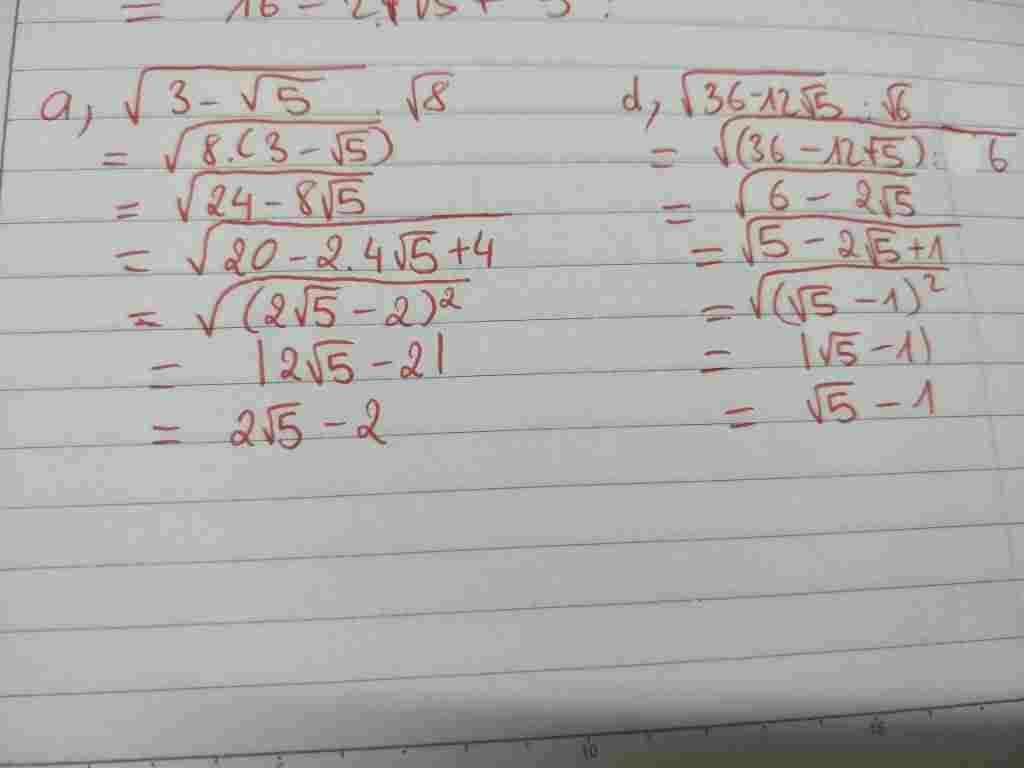 = 16 - 2.
a, √(3 - √5) . √8
= √(8.(3 - √5))
= √(24 - 8√5)
= √(20 - 2.4√5 + 4)
= √((2√5 - 2)²)
= |2√5 - 2|
= 2√5 - 2
d, √(36 - 12√5) : √6
= √((36 - 12√5) : 6)
= √(6 - 2√5)
= √(5 - 2√5 + 1)
= √((√5 - 1)²)
= |√5 - 1|
= √5 - 1
10
15